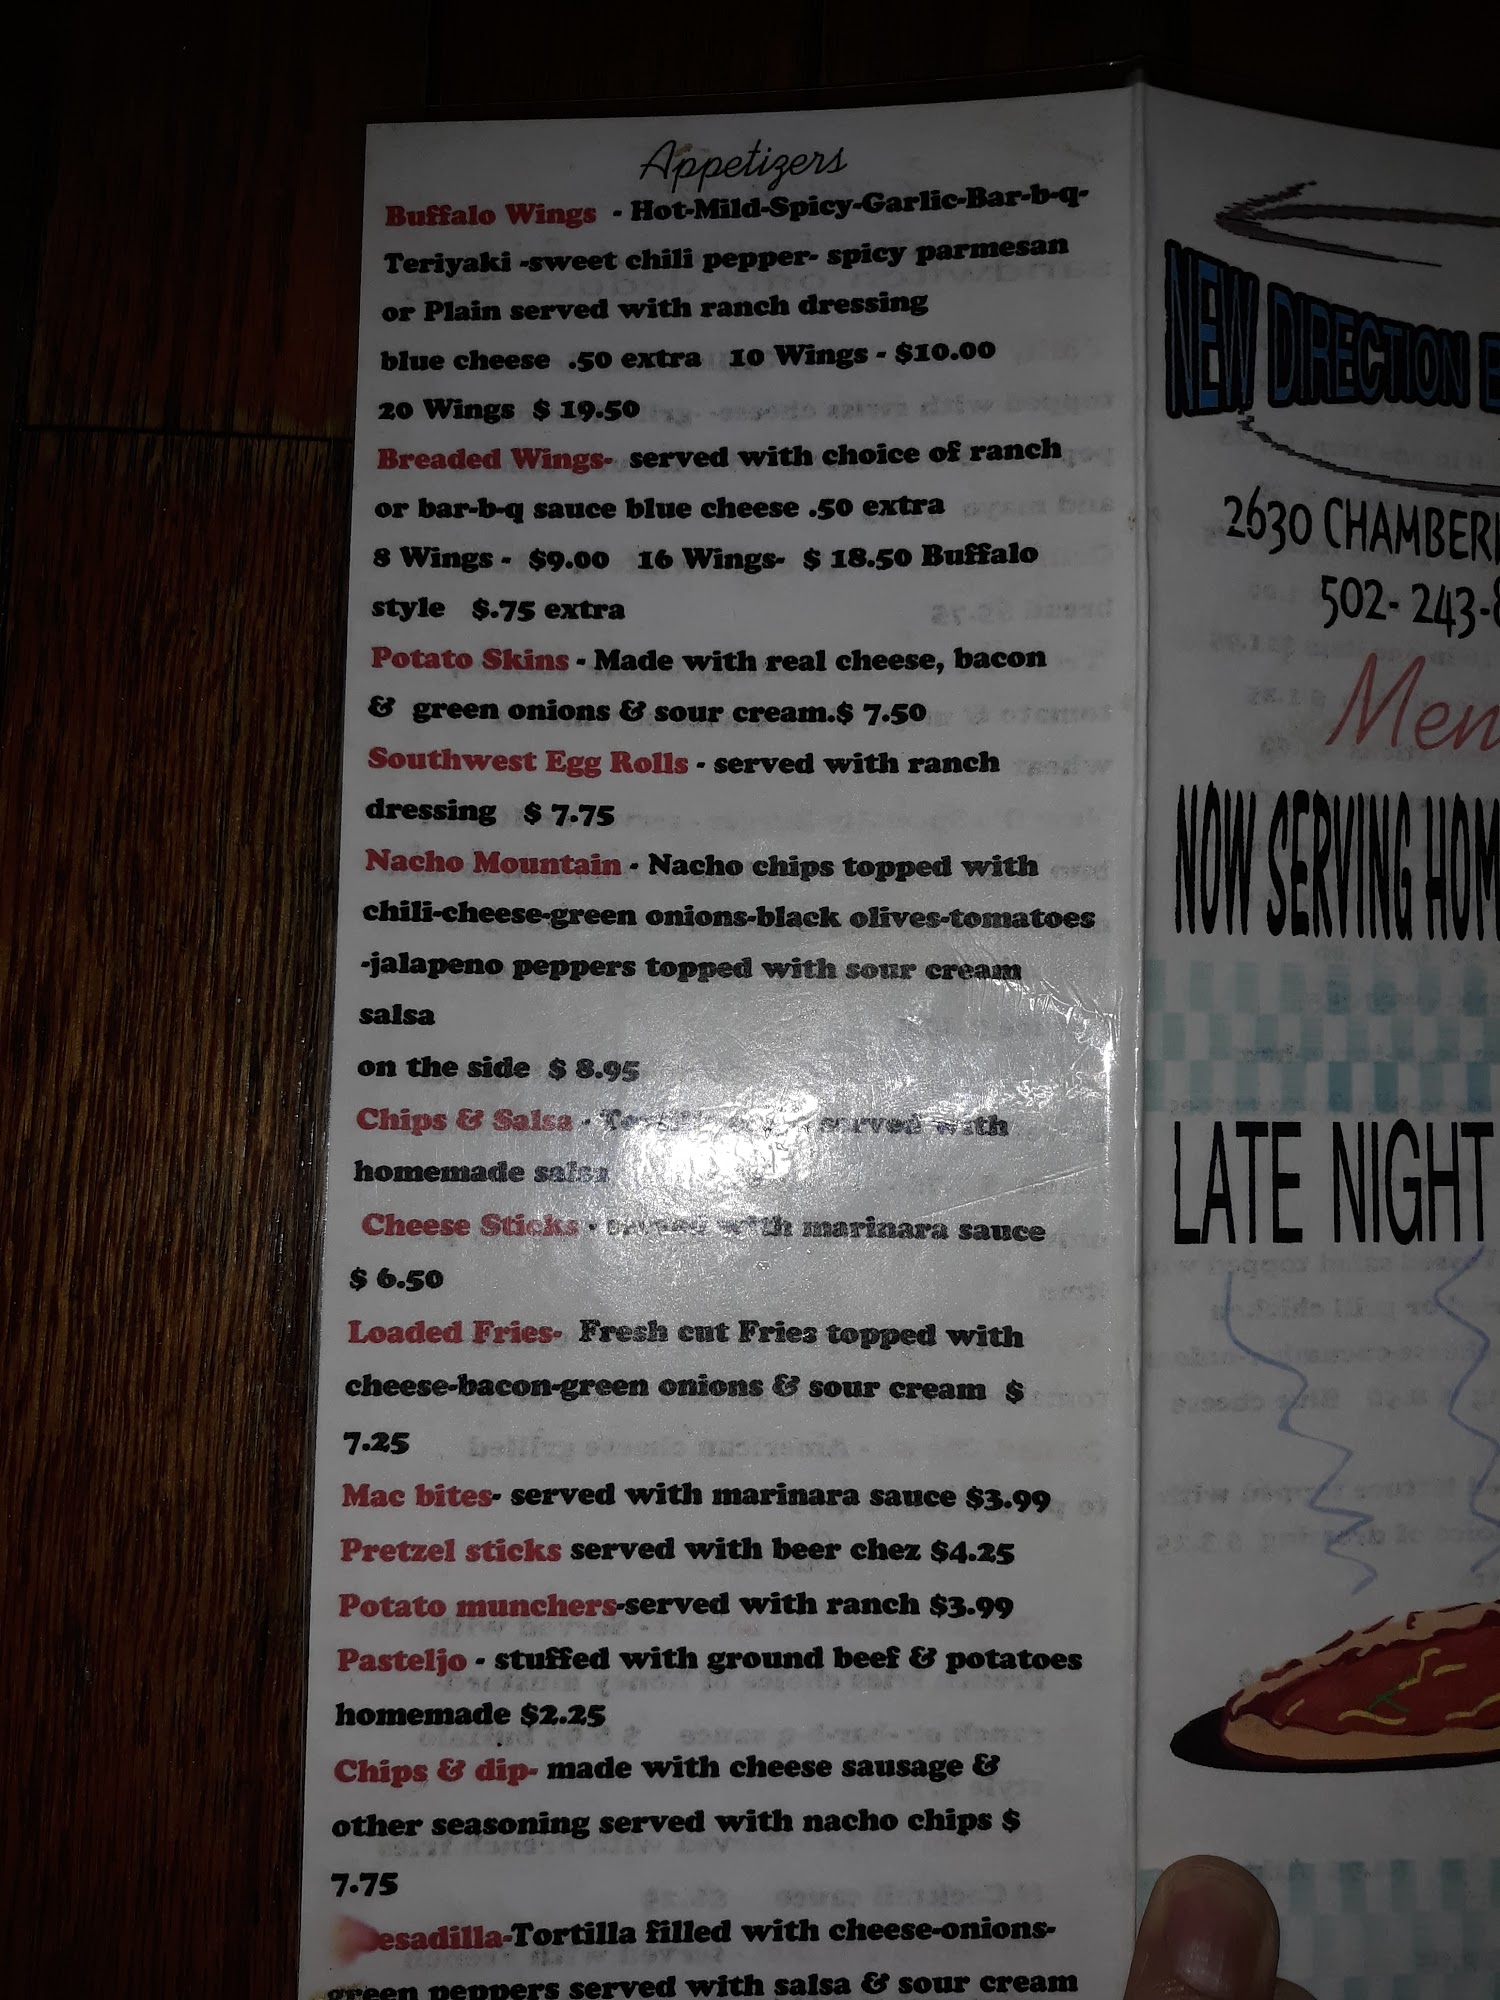 Appetizers
Buffalo Wings - Hot-Mild-Spicy-Garlic-Bar-b-q-
Teriyaki -sweet chili pepper- spicy parmesan
or Plain served with ranch dressing
blue cheese .50 extra 10 Wings - $10.00
20 Wings $ 19.50
Breaded Wings- served with choice of ranch
or bar-b-q sauce blue cheese .50 extra
8 Wings - $9.00 16 Wings- $ 18.50 Buffalo
style $.75 extra
Potato Skins - Made with real cheese, bacon
& green onions & sour cream.$ 7.50
Southwest Egg Rolls - served with ranch
dressing $ 7.75
Nacho Mountain - Nacho chips topped with
chili-cheese-green onions-black olives-tomatoes
-jalapeno peppers topped with sour cream
salsa
on the side $ 8.95
Chips & Salsa - served with
homemade salsa
Cheese Sticks - served with marinara sauce
$ 6.50
Loaded Fries- Fresh cut Fries topped with
cheese-bacon-green onions & sour cream $
7.25
Mac bites- served with marinara sauce $3.99
Pretzel sticks served with beer chez $4.25
Potato munchers-served with ranch $3.99
Pasteljo - stuffed with ground beef & potatoes
homemade $2.25
Chips & dip- made with cheese sausage &
other seasoning served with nacho chips $
7.75
esadilla-Tortilla filled with cheese-onions-
green peppers served with salsa & sour cream
NEW DIRECTION
2630 CHAMBER
502- 243-
Men
NOW SERVING HOM
LATE NIGHT